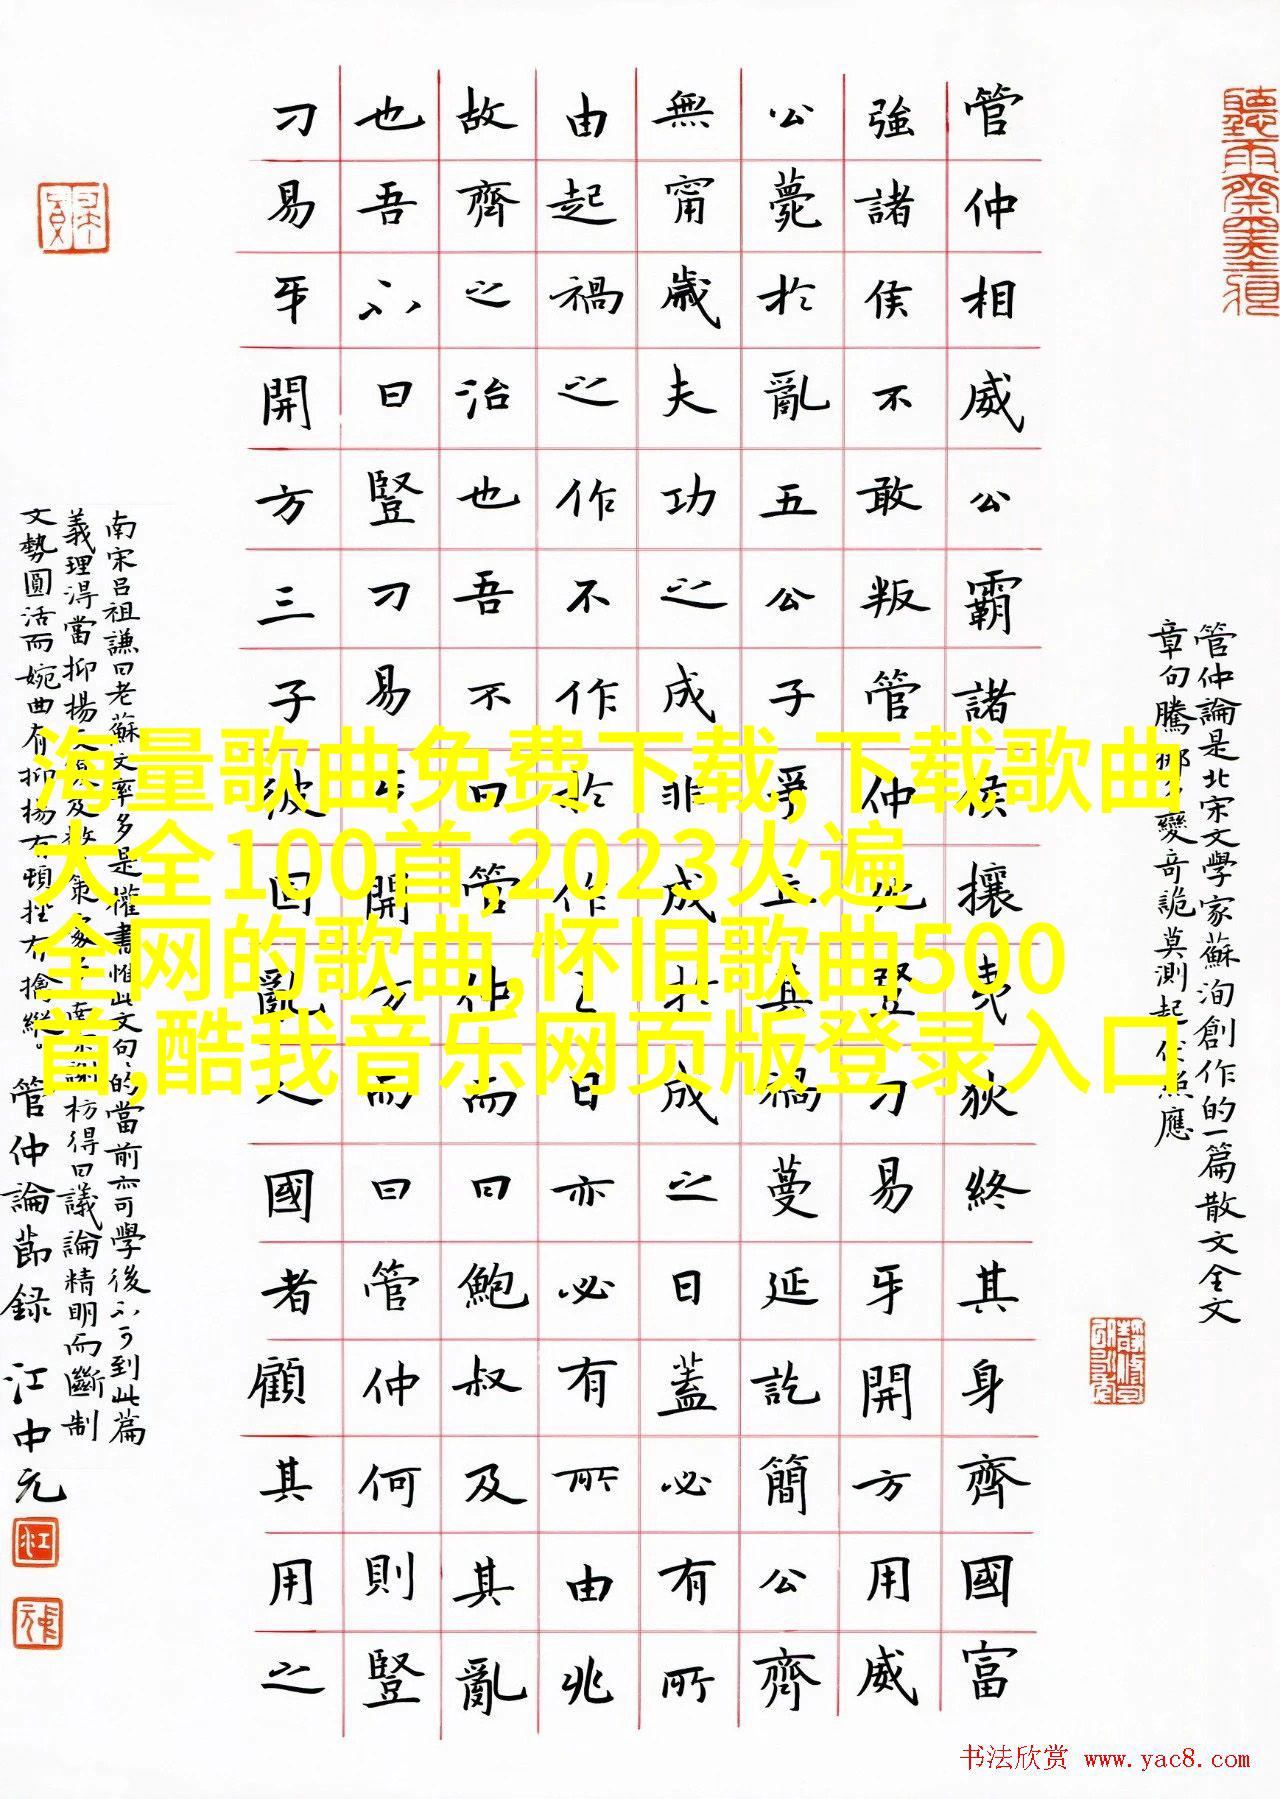 管仲論是北宋文學家蘇洵創作的一篇散文全文
章句騰挪多變奇詭莫測起伏照應
管仲相威公霸諸侯攘夷狄終其身齊國富
強諸侯不敢叛管仲死豎刁易牙開方用威
公薨於亂五公子爭立其禍蔓延訖簡公齊
無甯歲夫功之成非成於成之日蓋必有所
由起禍之作不作於作之日亦必有所由兆
故齊之治也吾不曰管仲而曰鮑叔及其亂
也吾不曰豎刁易牙開方而曰管仲何則豎
刁易牙開方三子彼固亂人國者顧其用之
南宋吕祖謙曰老蘇文率多是權書惟此文句句的當前亦可學後不可到此篇
義理淂當抑揚及策謝枋得曰議論精明而斷制
文勢圓活而婉曲有抑揚有頓挫有擒縱。管仲論節録 江中元
海量歌曲免费下载,下载歌曲
大全100首,2023火遍
全网的歌曲,怀旧歌曲500
首,酷我音乐网页版登录入口
书法欣赏 www.yac8.com